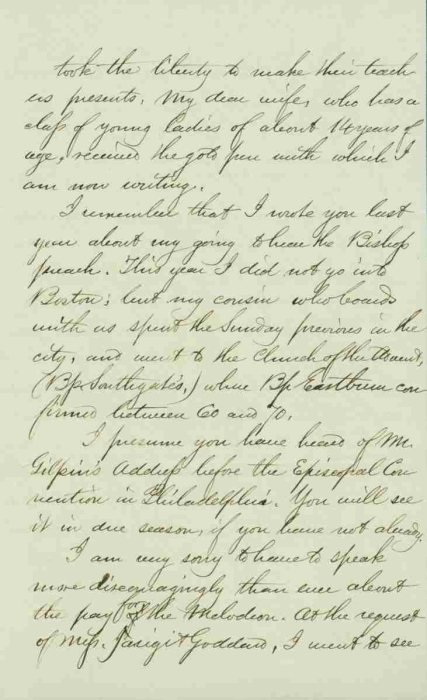 took the liberty to make their teach-
ers presents. My dear wife, who has a
class of young ladies of about 14 years of
age, received the gold pen with which I
am now writing.
I remember that I wrote you last
year about my going to hear the Bishop
preach. This year I did not go into
Boston; but my cousin who boards
with us spent the Sunday previous in the
city, and went to the Church of the Advent,
(Bp. Southgate's,) where Bp Eastburn con
firmed between 60 and 70.
I presume you have heard of Mr.
Gilpin's Address before the Episcopal Con
vention in Philadelphia. You will see
it in due season, if you have not already.
I am very sorry to have to speak
more discouragingly than ever about
the pay for the Melodeon. At the request
of Mess. Iasigi & Goddard, I went to see